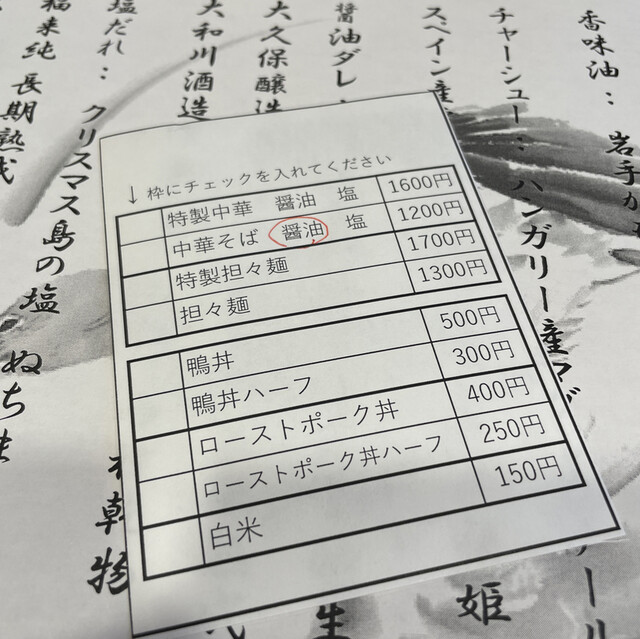 香味油：岩手が
チャーシュー：ハンガリー産マ
スペイン産
醤油ダレ：
大久保醸造
大和川酒造
塩だれ：クリスマス島の塩 ぬちま
福来純 長期熟成
乾物
姫
生
ール
↓ 枠にチェックを入れてください
特製中華 醤油 塩 1600円
中華そば 醤油 塩 1200円
特製担々麺 1700円
担々麺 1300円
鴨丼 500円
鴨丼ハーフ 300円
ローストポーク丼 400円
ローストポーク丼ハーフ 250円
白米 150円